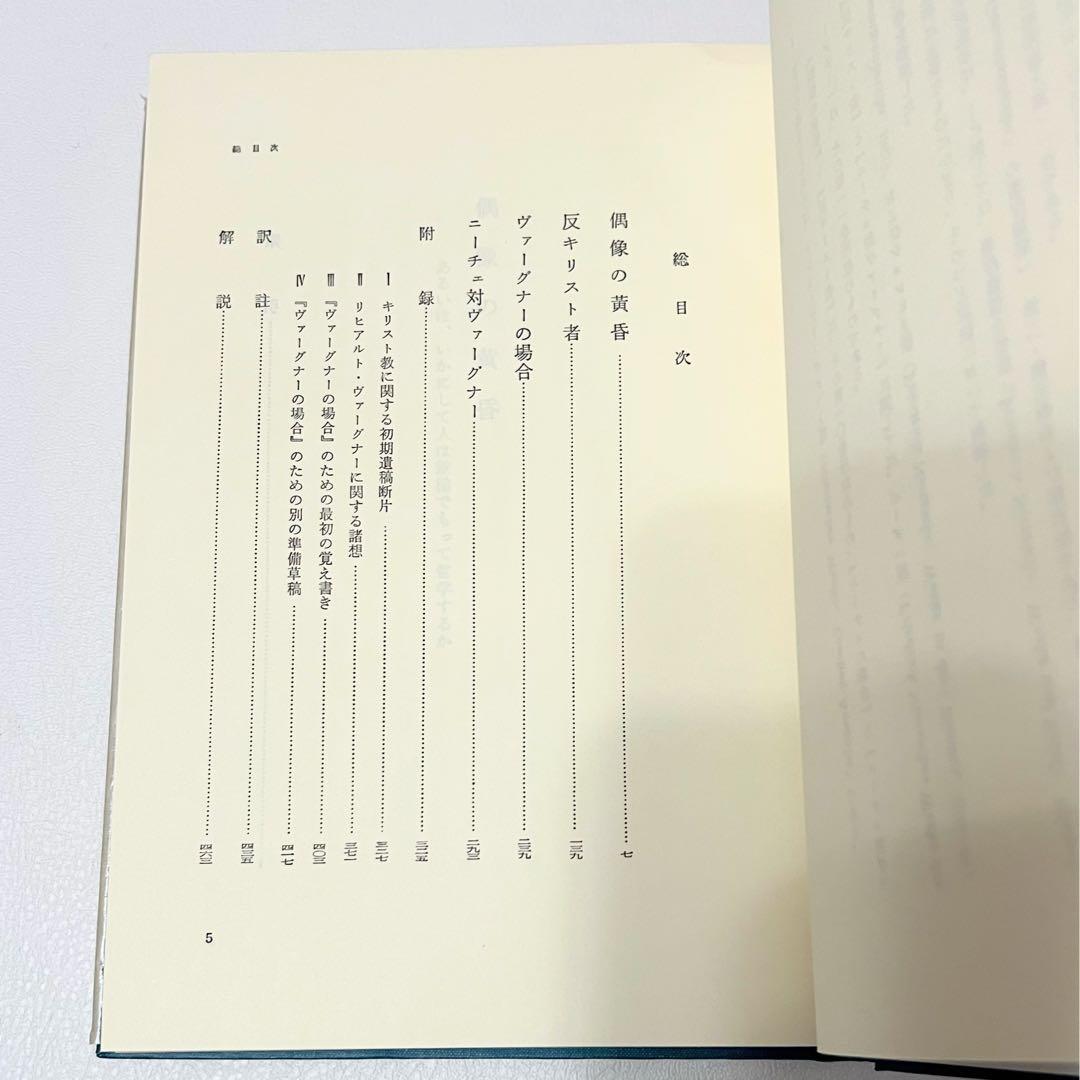 総目次
総目次
偶像の黄昏……七
反キリスト者……一三九
ヴァーグナーの場合……二三九
ニーチェ対ヴァーグナー……二九三
附録……三二五
Ⅰ キリスト教に関する初期遺稿断片……三二七
Ⅱ リヒアルト・ヴァーグナーに関する諸想……三七一
Ⅲ 『ヴァーグナーの場合』のための最初の覚え書き……四〇三
Ⅳ 『ヴァーグナーの場合』のための別の準備草稿……四一七
訳註……四三五
解説……四六三
5